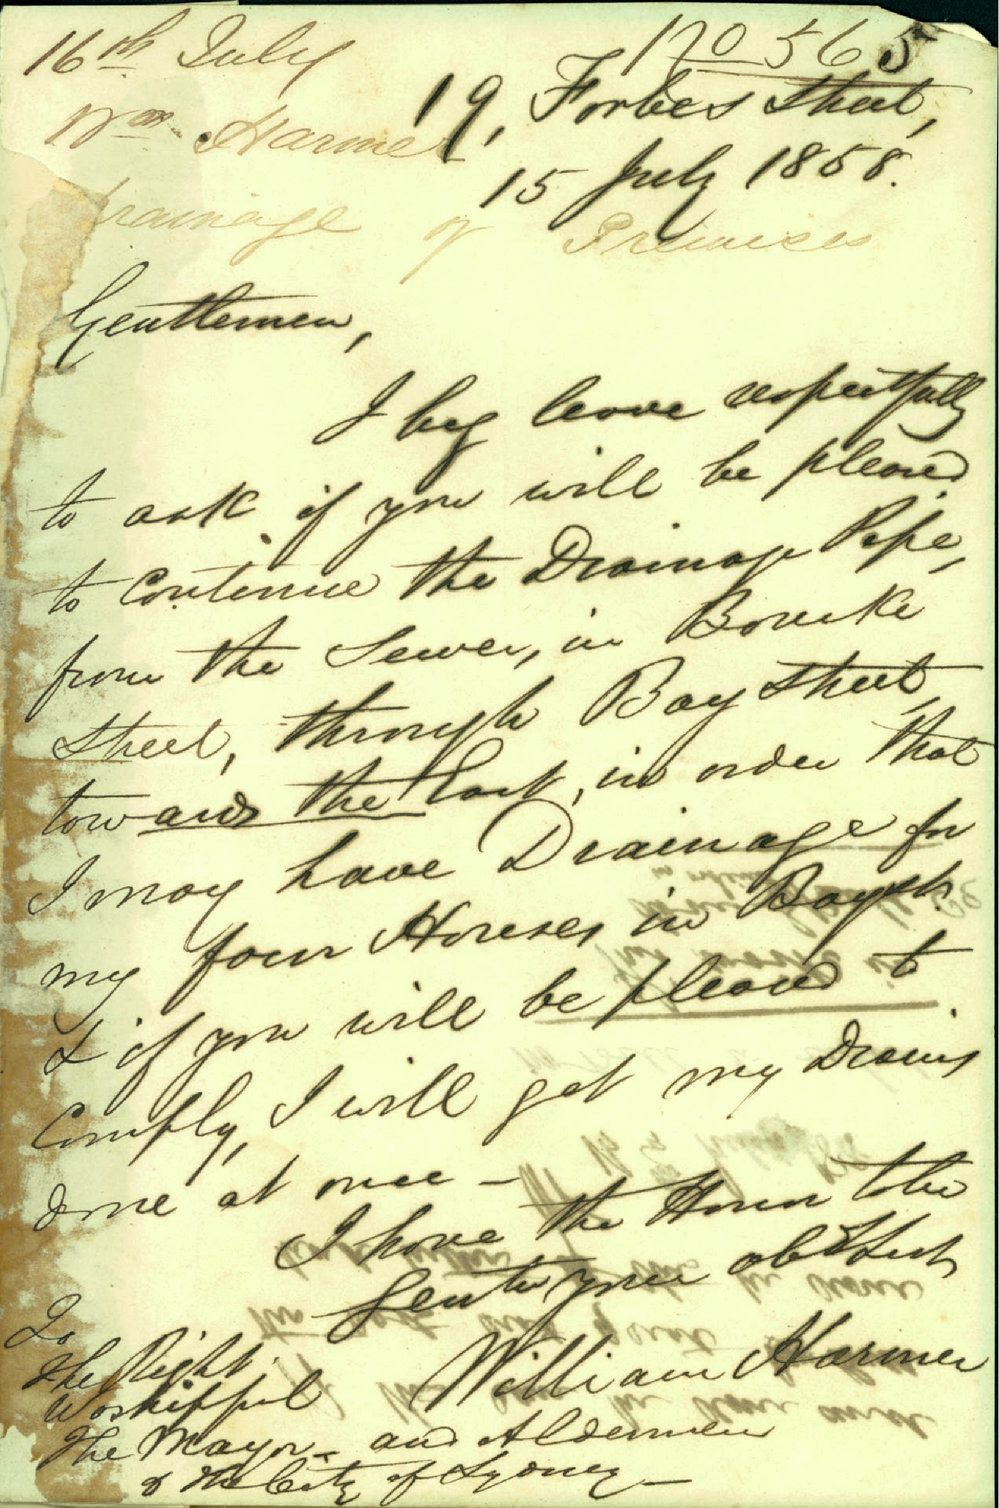 16th July
No 565
Wm Harmer
19, Forbes Street,
15 July 1858.
Drainage of Premises
Gentlemen,
I beg leave respectfully
to ask if you will be pleased
to continue the Drainage Pipe,
from the Sewer, in Bourke
Street, through Bay Street,
towards the East, in order that
I may have Drainage for
my four Houses in Bay St
& if you will be pleased to
Comply, I will get my Drains
done at once —
I have the Honor to be
Gentn your obt Servt
William Harmer
To
The Right
Worshipful
The Mayor — and Aldermen
of the City of Sydney —